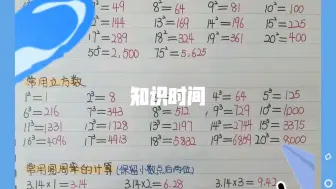 =49 8²=64 9²=81 10²=100
12²=144 13²=169 14²=196 15²=225
17²=289 18²=324 19²=361 20²=400
50²=2,500 75²=5,625
常用立方数
1³=1 2³=8 4³=64 5³=125
知识时间
6³=216 7³=343 9³=729 10³=1000
11³=1331 12³=1728 13³=2197 14³=2744 15³=3375
16³=4096 17³=4913 18³=5832 19³=6859 20³=8000
常用圆周率的计算(保留小数点后两位)
3.14×1=3.14 3.14×2=6.28 3.14×3=9.42